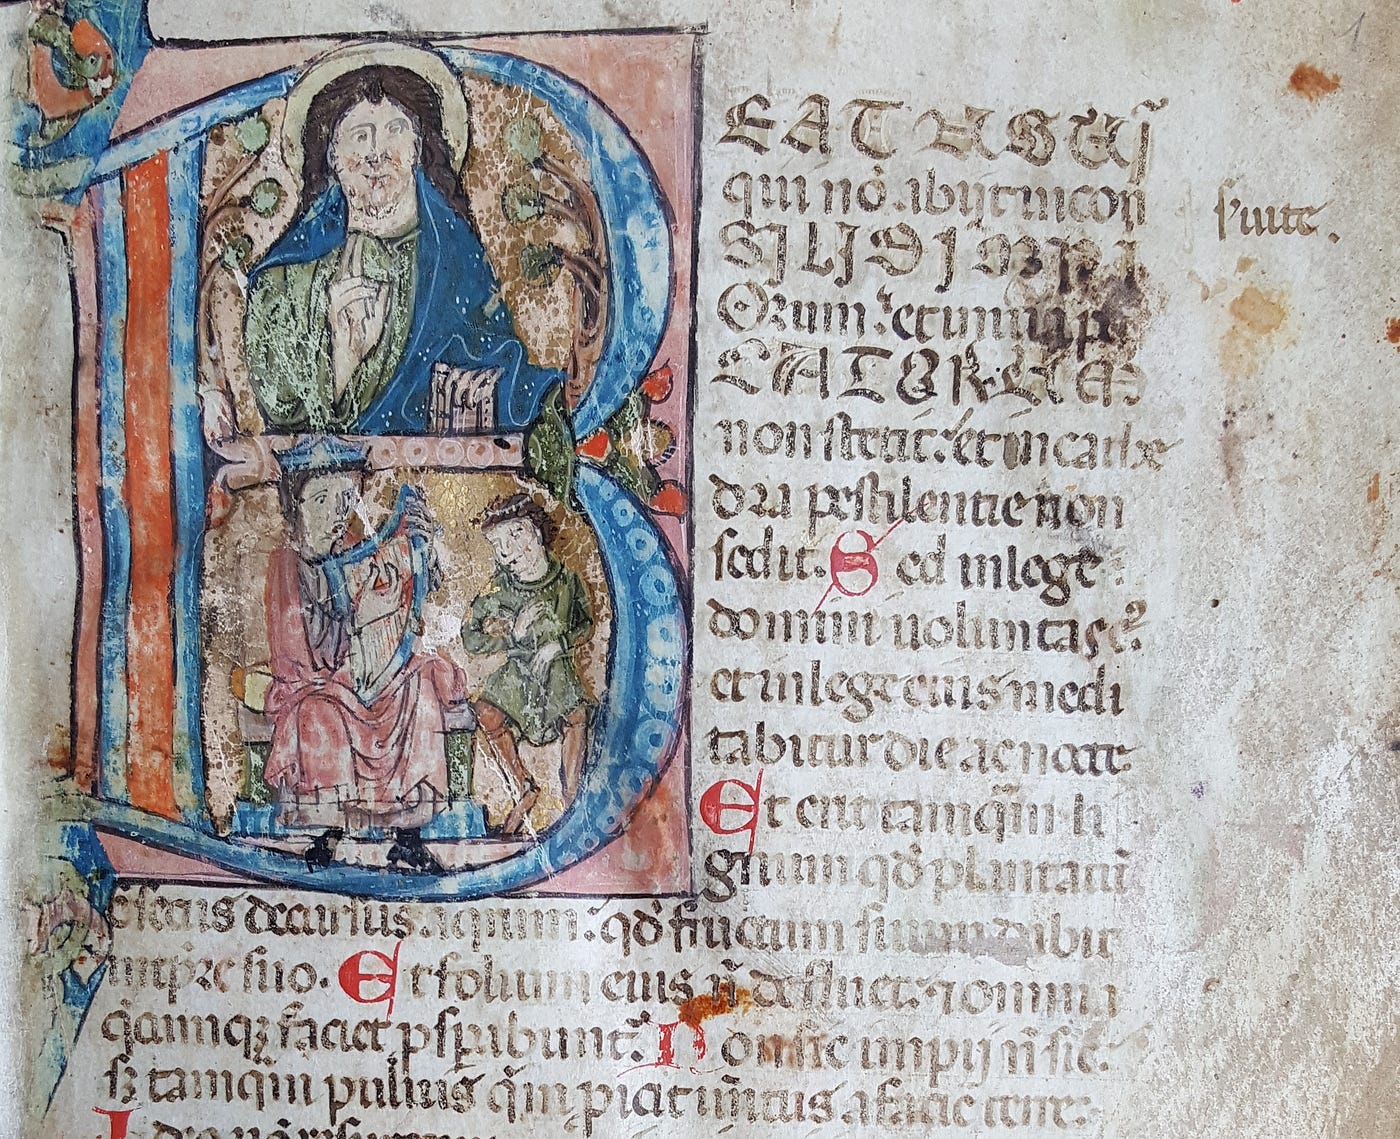 BEATUS UI
qui nō. abijt in con
SILIO IMPI
Orum. et in uia pec
CATORUM
non stetit: et in cathe
dra pestilentie non
sedit. Sed in lege
domini uoluntas eꝰ
et in lege eius medi
tabitur die ac nocte
Et erit tamq̄m li
gnum qd̄ plantatū
est secus decursus. aquarum: qd̄ fructum suum dabit
in tp̄re suo. Et folium eius n̄ defluet: ⁊ omnia
q̄cumqꝫ faciet psp̱abunt̄. Non sic impij n̄ sic.
sꝫ tamq̄m puluis q̄m piciat uentus a facie terre:
Ideo nō resurgunt